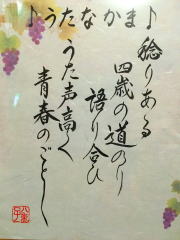 ♪うたなかま♪
稔りある
四歳の道のり
語り合ひ
うた声高く
青春のごとし